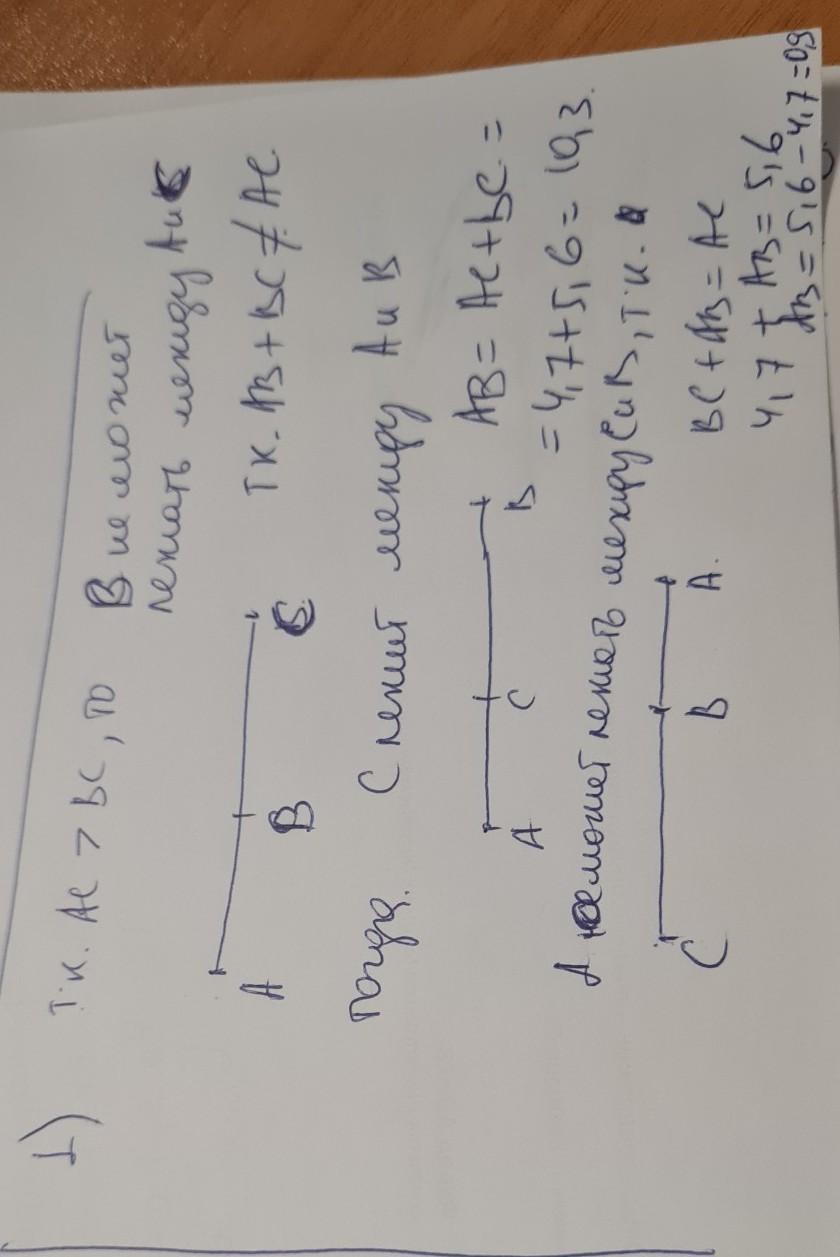 1) т.к. АС > ВС, то В не может
лежать между А и С
A B C
Тк. АВ + ВС ≠ АС.
Тогда. С лежит между А и В
A C B
АВ = АС + ВС =
= 4,7 + 5,6 = 10,3.
А может лежать между С и В, т.к.
C B A.
ВС + АВ = АС
4,7 + АВ = 5,6
АВ = 5,6 - 4,7 = 0,9